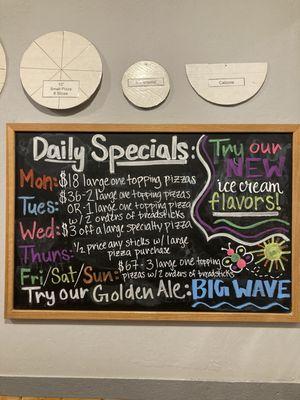 12"
Small Pizza
6 Slices
Calzone
Daily Specials:
Mon: $18 large one topping pizzas
Tues: $36-2 large one topping pizzas
OR-1 large one topping pizza
w/ 2 orders of breadsticks
Wed: $3 off a large specialty pizza
Thurs: 1/2 price any sticks w/ large
pizza purchase
Fri/Sat/Sun: $67-3 large one topping
pizzas w/ 2 orders of breadsticks
Try our Golden Ale: BIG WAVE
Try our
NEW
ice cream
flavors!